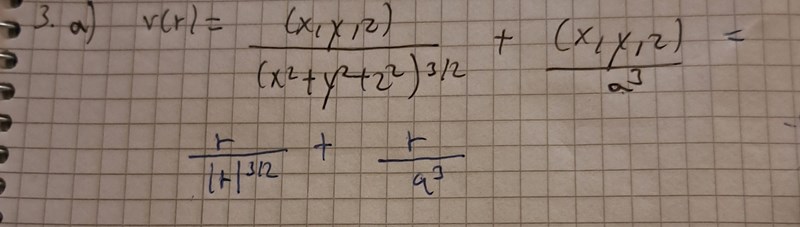 3. a) v(r) = (x, y, z) / (x² + y² + z²)^3/2 + (x, y, z) / a³ =
r / |r|^3/2 + r / a³